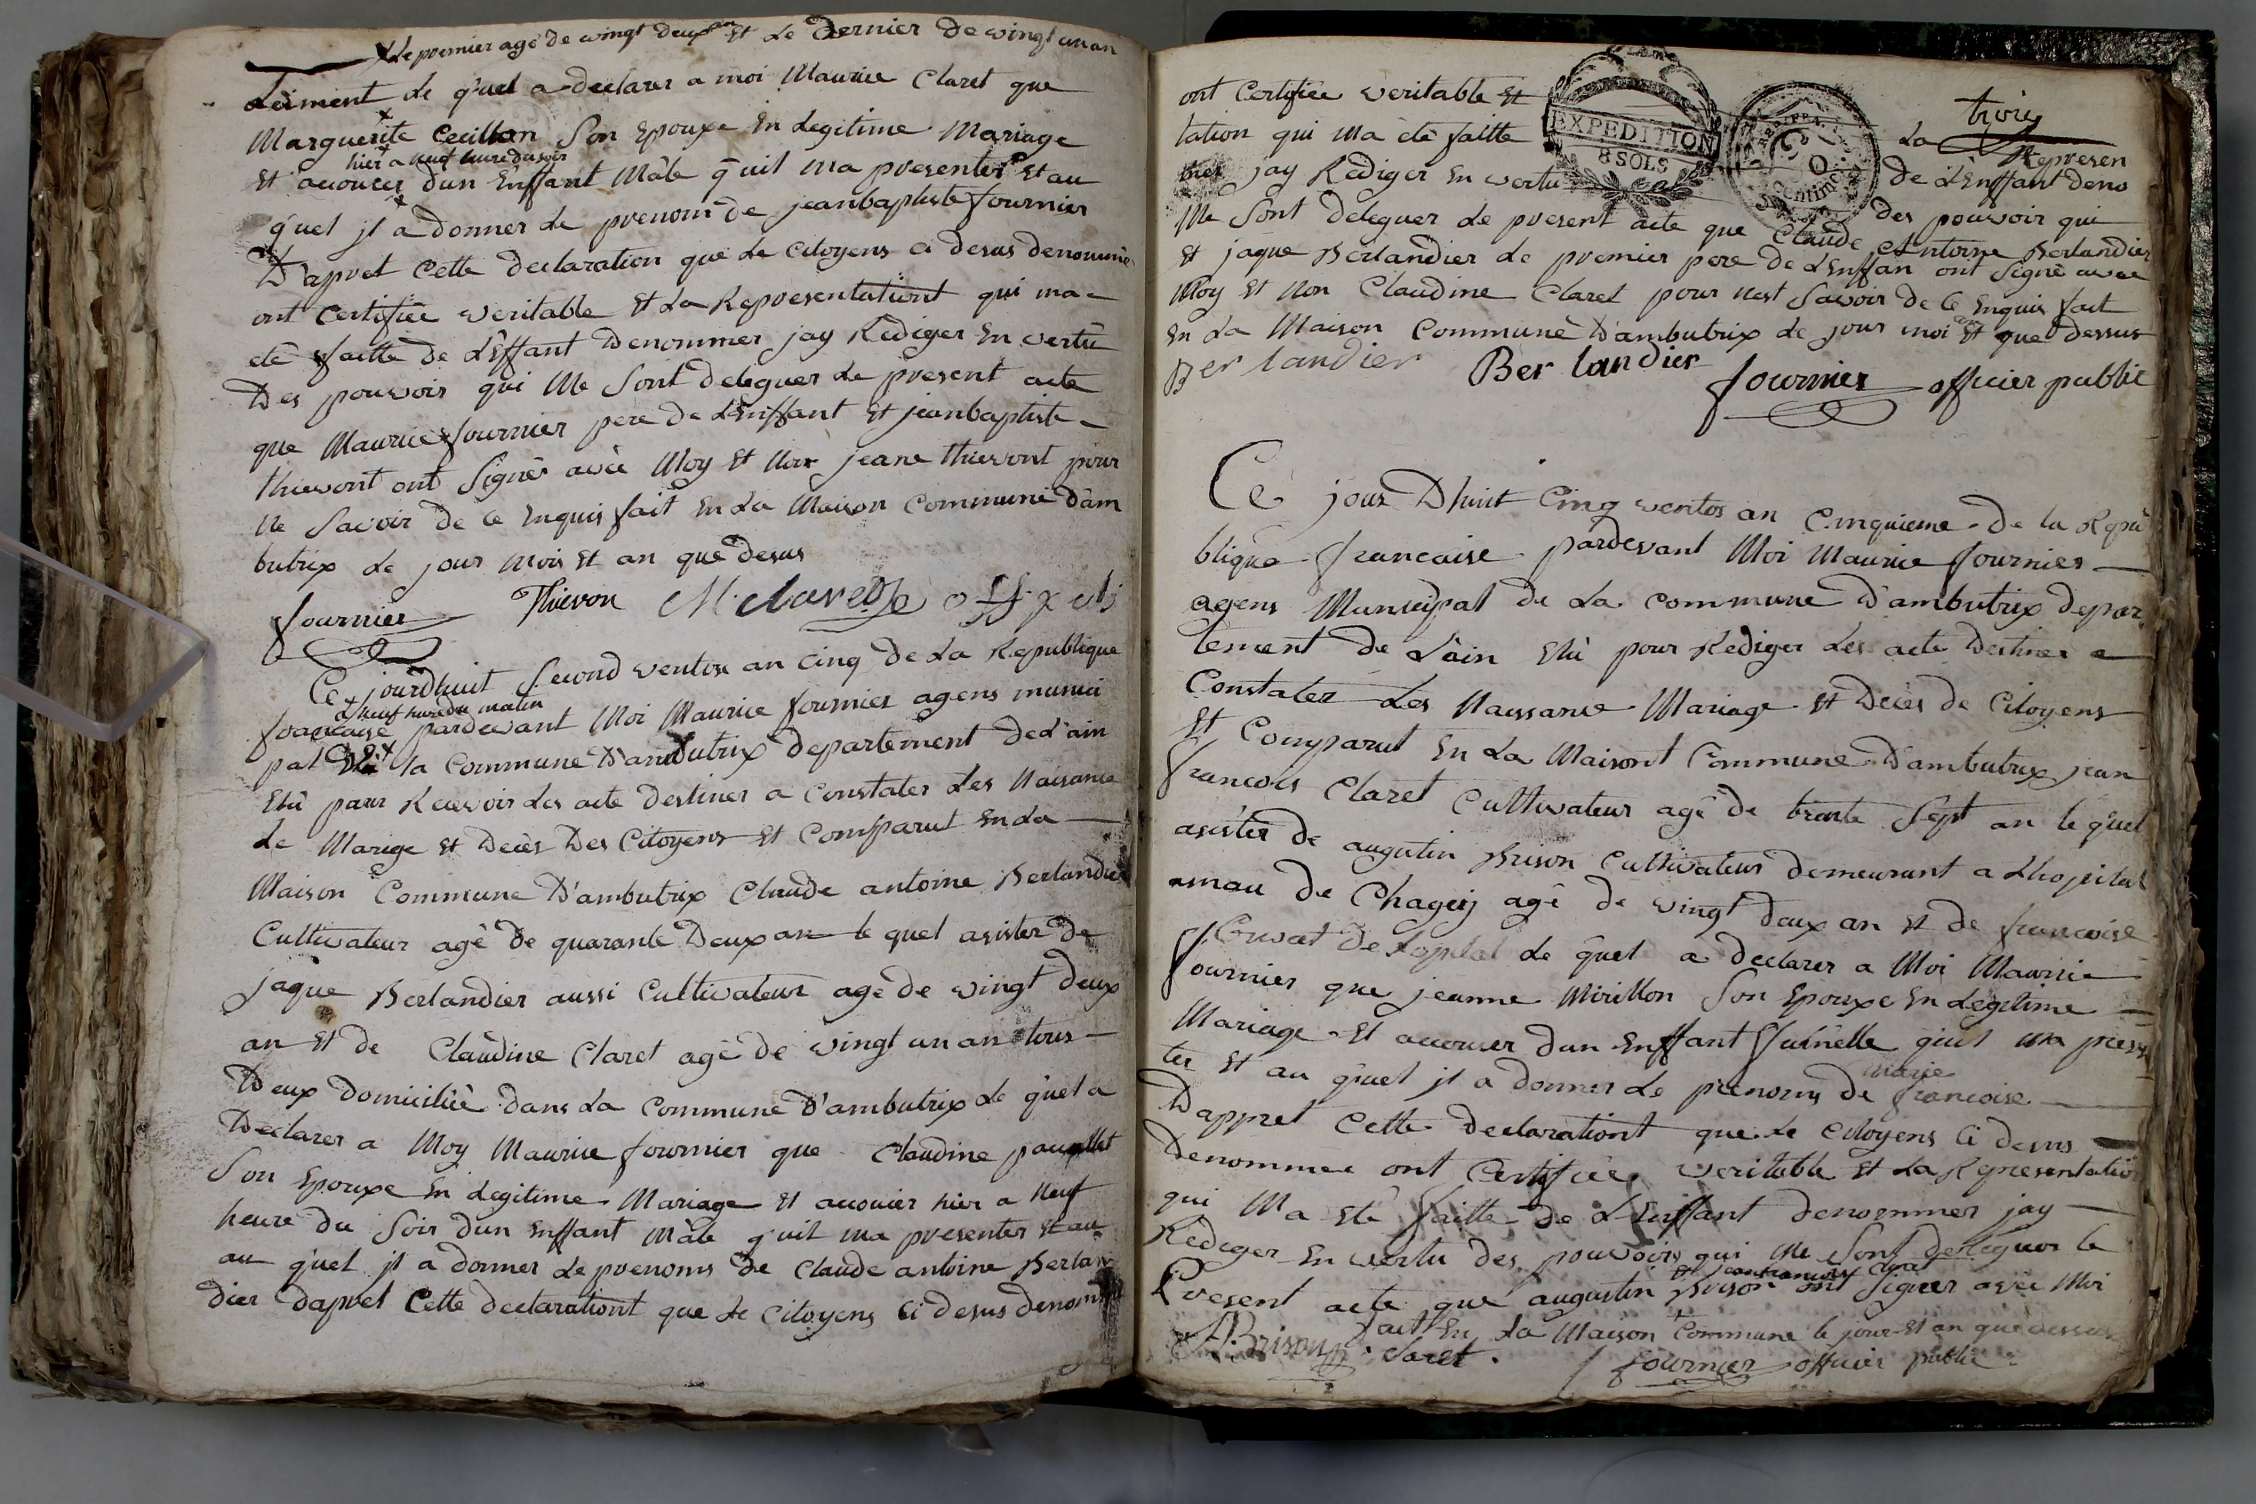 Le premier agé de vingt deux an Et Le Dernier De vingt un an
Leiment Le q'uel a declarer a moi Maurice Claret que
Marguerite Cecillon Son Epouxe En Legitime Mariage
hier a neuf heure du soir
Et acoucer d'un Enffant Mâle q'uil ma presenter Et au
q'uel jl a donner Le prenom de jeanbaptiste fournier
D'apret Cette declaration que Le Citoyens ci desus denommé
ont Certifiée veritable Et La Representationt qui ma
eté faitte de L'Effant Denommer jay Rédiger En vertû
Des pouvoir qui Me Sont deleguer Le present acte
que Maurice fournier pere de L'Enffant Et jeanbaptiste
thievont ont Signér avec Moy Et Non jeane thievont pour
Ne Savoir de Ce Enquis fait En La Maison Commune D'am
butrix Le jour Mois Et an que desus
fournier Thievon M. claret off. pub
Ce jourdhuit Second ventose an Cinq de La Republique
a neuf heure du matin
francaise pardevant Moi Maurice fournier agens munici
pal De la Commune D'ambutrix departement de L'ain
Elû pour Recevoir Les acte destiner a Constater Les Naisance
Le Marige Et Decès Des Citoyens Et Comparut En La
Maison Commune D'ambutrix Claude antoine Berlandier
Cultivateur agé de quarante Deux an le quel asister de
jaque Berlandier aussi Cultivateur agé de vingt deux
an Et de Claudine Claret agé de vingt un an tous
Deux Domiciliée dans La Commune D'ambutrix Le q'uel a
Declarer a Moy Maurice fournier que Claudine
Son Epouxe En Legitime Mariage Et acoucer hier a Neuf
heure du Soir dun Enffant Mâle q'uil ma presenter Et au
au q'uel jl a donner Le prenoms de Claude antoine Berlan
dier dapret Cette declarationt que Le Citoyens Ci desus denommé
ont Certifiée veritable Et La Represen
tation qui ma été faitte de L'Enffant deno
mer jay Rediger En vertu des pouvoir qui
Me Sont deleguer Le present acte que Claude Antoine Berlandier
Et jaque Berlandier Le premier pere de L'Enffan ont Signé avec
Moy Et Non Claudine Claret pour nest Savoir de Ce Enquis fait
En La Maison Commune D'ambutrix Le jour moi Et que dessus
EXPEDITION
8 SOLS
Berlandier Berlandier
fournier officier public
Ce jour Dhuit Cinq ventos an Cinquieme de la Repu
blique francaise pardevant Moi Maurice fournier
agens Municipal de La Commune D'ambutrix depar
tement de L'ain Elû pour Rediger Les acte Destiner a
Constater Les Naissance Mariage Et Decès de Citoyens
Et Comparut En La Maisont Commune D'ambutrix jean
francois Claret Cultivateur agé de trante Sept an le q'uel
asister de augustin Brison Cultivateur demeurant a Lhopital
amau de Chagey agé de vingt deux an Et de francoise
de Lopital Le q'uel a declarer a Moi Maurice
fournier que jeanne Mirillon Son Epouxe En Legitime
Mariage Et acoucer dun Enffant fumelle q'uil ma presen
ter Et au q'uel jl a donner Le prenoms de marie francoise
Dappret Cette declarationt que Le Citoyens Ci desus
Denommer ont Certifiée veritable Et La Representation
qui Ma Eté faitte de L'Enffant denommer jay
Rédeger En vertu des pouvoirs qui Me Sont deleguer le
Et jeanfrancois Claret
Present acte que augustin Brison ont Signer avec Moi
fait En La Maison Commune le jour Et an que dessus
ABrison Claret fournier officier public